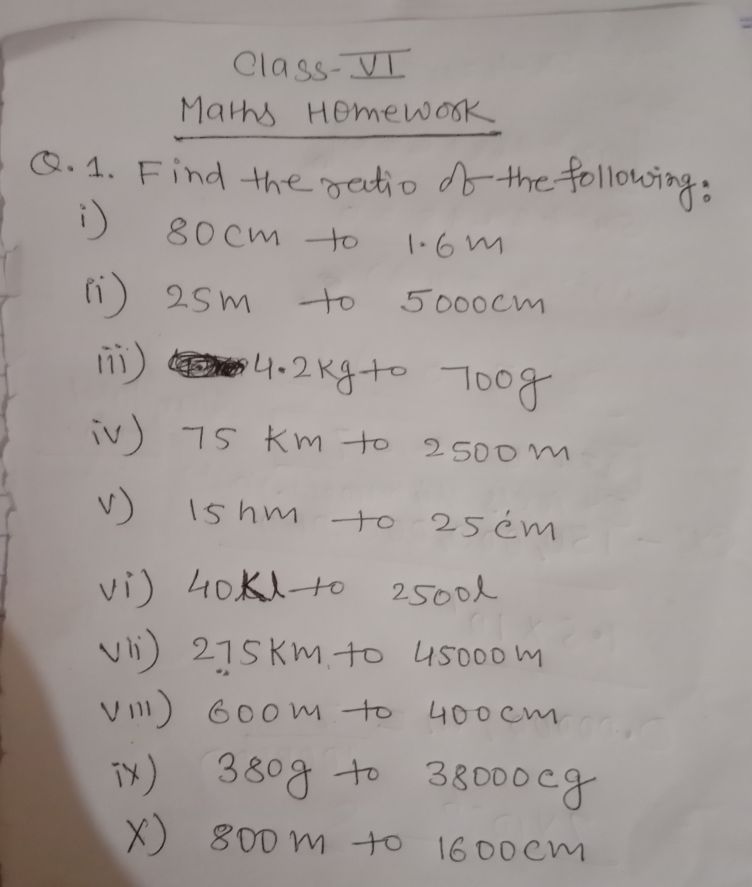 Class-VI
Maths Homework
Q.1. Find the ratio of the following:
i) 80cm to 1.6m
ii) 25m to 5000cm
iii) 4.2kg to 700g
iv) 75 km to 2500m
v) 15hm to 25cm
vi) 40Kl to 2500l
vii) 275km to 45000m
viii) 600m to 400cm
ix) 380g to 38000cg
x) 800m to 1600cm